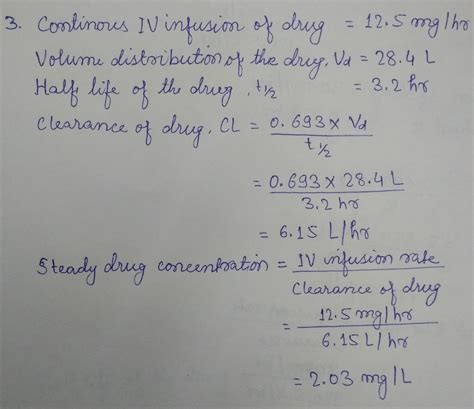 3. Continous IV infusion of drug = 12.5 mg/hr
Volume distribution of the drug, Vd = 28.4 L
Half life of the drug, t1/2 = 3.2 hr
Clearance of drug, CL = 0.693 × Vd / t1/2
= 0.693 × 28.4 L / 3.2 hr
= 6.15 L/hr
Steady drug concentration = IV infusion rate / Clearance of drug
= 12.5 mg/hr / 6.15 L/hr
= 2.03 mg/L